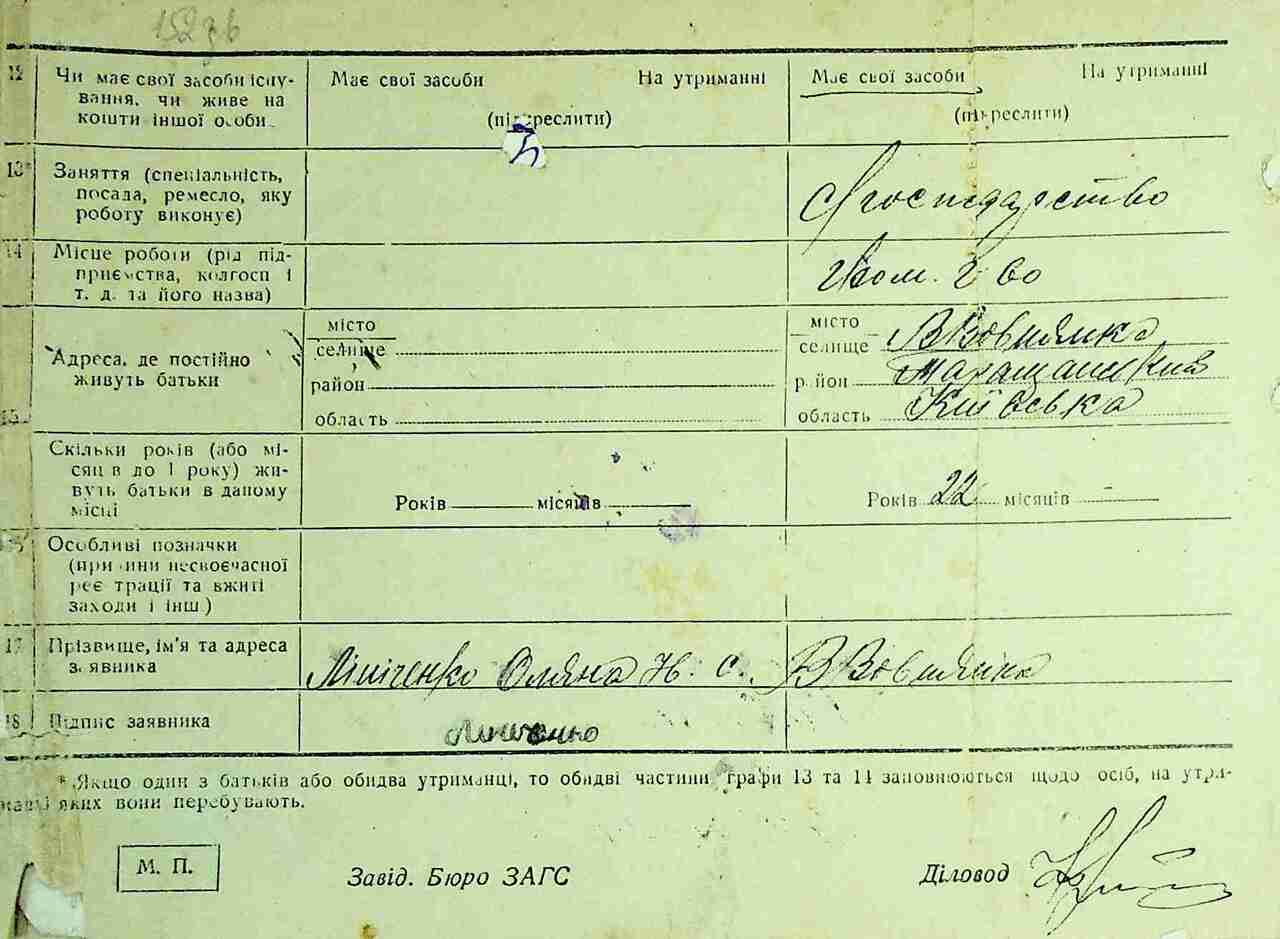 152 зв
12 Чи має свої засоби існу- Має свої засоби На утриманні Має свої засоби На утриманні
вання, чи живе на
кошти іншої особи (підкреслити) (підкреслити)
13* Заняття (спеціальність,
посада, ремесло, яку С/господарство
роботу виконує)
14 Місце роботи (рід під-
приємства, колгосп і
т. д. та його назва)
місто місто
селище селище В Вовнянка
Адреса, де постійно
живуть батьки район район Таращанский
15 область область Київська
Скільки років (або мі-
сяців до 1 року) жи-
вуть батьки в даному Років місяців Років 22 місяців
місці
Особливі позначки
(причини несвоєчасної
реєстрації та вжиті
заходи і інш.)
17 Прізвище, ім'я та адреса
заявника Ліпіченко Оляна с. В Вовнянка
18 Підпис заявника
* Якщо один з батьків або обидва утриманці, то обидві частини графи 13 та 14 заповнюються щодо осіб, на утри-
манні яких вони перебувають.
М. П. Завід. Бюро ЗАГС Діловод